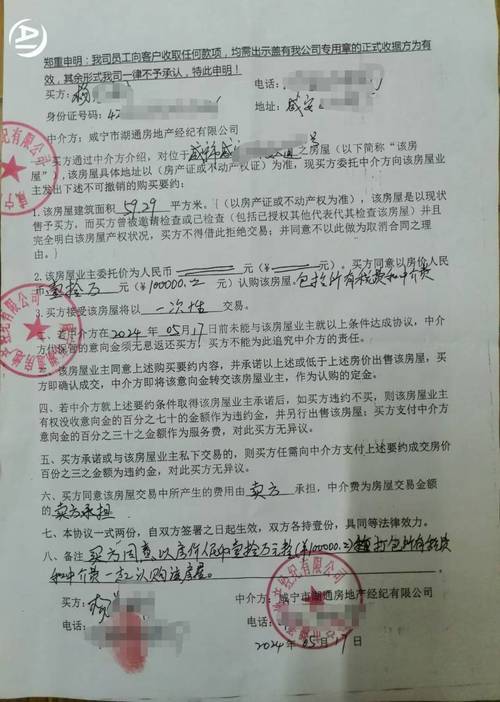 AI
郑重申明：我司员工向客户收取任何款项，均需出示盖有我公司专用章的正式收据方为有
效，其余形式我司一律不予承认，特此申明！
买方：
电话：
身份证号码：42
地址：咸安
中介方：咸宁市湖通房地产经纪有限公司
一、买方通过中介方介绍，对位于 号之房屋（以下简称“该房
屋”），该房屋具体地址以（房产证或不动产权证）为准，现买方委托中介方向该房屋业
主发出下述不可撤销的购买要约：
1.该房屋建筑面积 59.29 平方米。（（以房产证或不动产权为准），该房屋是以现状
售予买方，而买方曾被邀请检查或已检查（包括已授权其他代表代其检查该房屋）并且
完全明白该房屋产权状况，买方不得借此拒绝交易；并同意不以此做为取消合同之理
由。）
2.该房屋业主委托价为人民币 元（¥ 元），买方同意以房价人民
币 壹拾万 元（¥100000.2 元）认购该房屋。包括所有税费和中介费
3.买方接受该房屋将以 一次性 交易。
二、若中介方在 2024 年 05 月 17 日前未能与该房屋业主就以上条件达成协议，中介
方代保管的意向金须无息返还买方，买方不能为此追究中介方的责任。
三、该房屋业主同意上述购买要约内容，并承诺以上述或低于上述房价出售该房屋，买
方即确认成交，中介方即将该意向金转交该房屋业主，作为认购的定金。
四、若中介方就上述要约条件取得该房屋业主承诺后，如买方违约不买，则该房屋业主
有权没收意向金的百分之七十的金额作为违约金，并另行出售该房屋；买方支付中介方
意向金的百分之三十之金额作为服务费，对此买方无异议。
五、买方承诺或与该房屋业主私下交易的，则买方任需向中介方支付上述要约成交房价
百份之三之金额为违约金，对此买方无异议。
六、买方同意该房屋交易中所产生的费用由 卖方 承担，中介费为房屋交易金额
的 卖方承担
七、本协议一式两份，自双方签署之日起生效，双方各持壹份，具同等法律效力。
八、备注 卖方同意以房价人民币壹拾万元整(¥100000.2) 打包所有税费
和中介费一起认购该房屋。
买方：
中介方：咸宁市湖通房地产经纪有限公司
电话：
电话：
2024 年 05 月 17 日